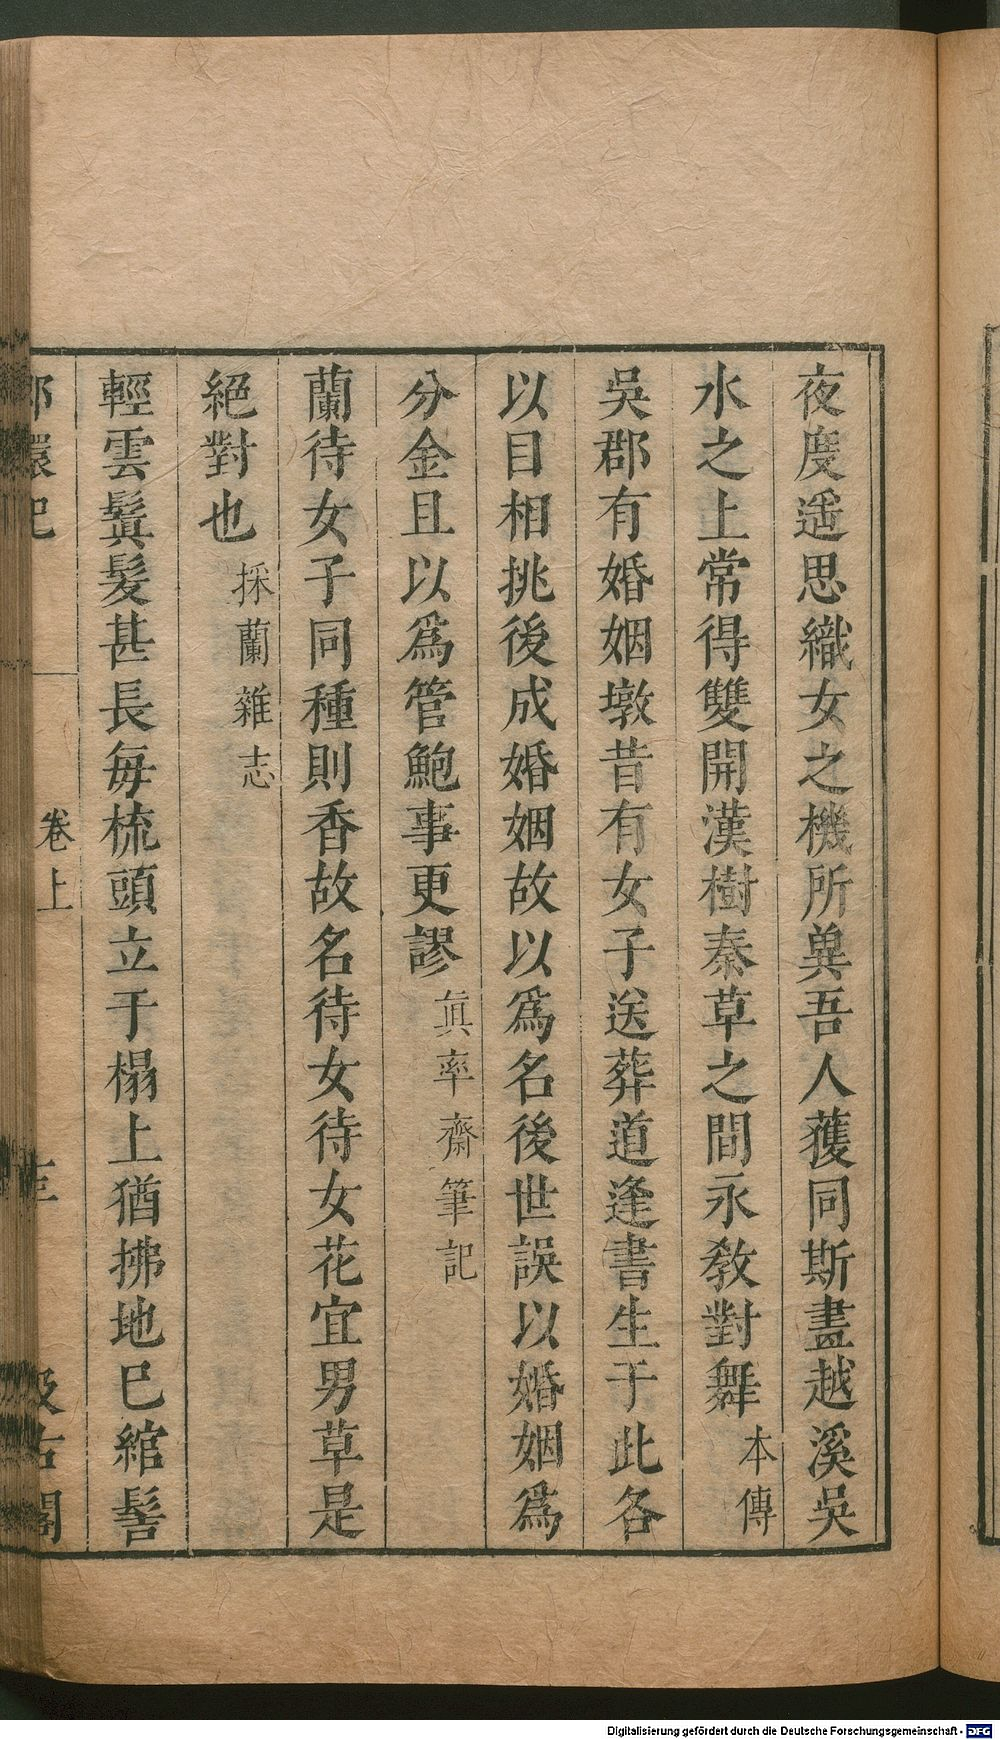 夜度遥思織女之機所兾吾人獲同斯畫越溪吳
水之上常得雙開漢樹秦草之間永教對舞本傳
吳郡有婚姻墩昔有女子送葬道逢書生于此各
以目相挑後成婚姻故以爲名後世誤以婚姻爲
分金且以爲管鮑事更謬眞率齋筆記
蘭待女子同種則香故名待女待女花宜男草是
絕對也採蘭雜志
輕雲鬒髮甚長每梳頭立于榻上猶拂地已綰髻
環記 卷上 古閣
Digitalisierung gefördert durch die Deutsche Forschungsgemeinschaft - DFG